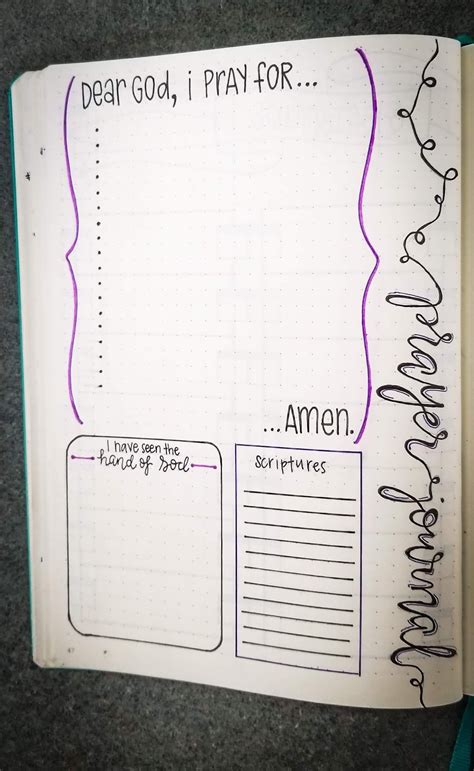 Dear God, i PRAY FOR...
...AMEN.
prayer journal
I have seen the
hand of God
Scriptures